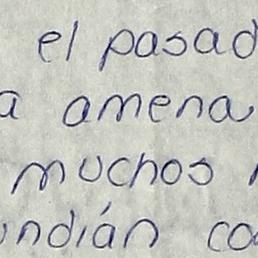 el pasad
a amena
muchos
undián co